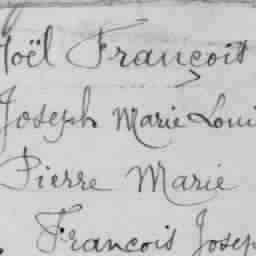 Noël François
Joseph Marie Loui
Pierre Marie
François Josep